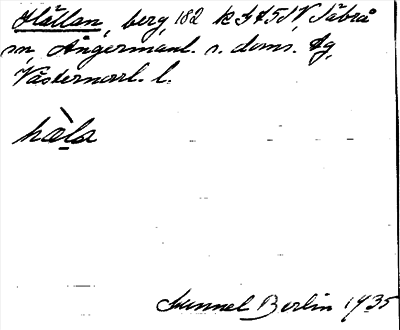 Hällan, berg, 182 k I 25 N, Säbrå
sn, Ångermanl. s. doms. tg,
Västernorrl. l.
hàla
Gunnel Berlin 1935